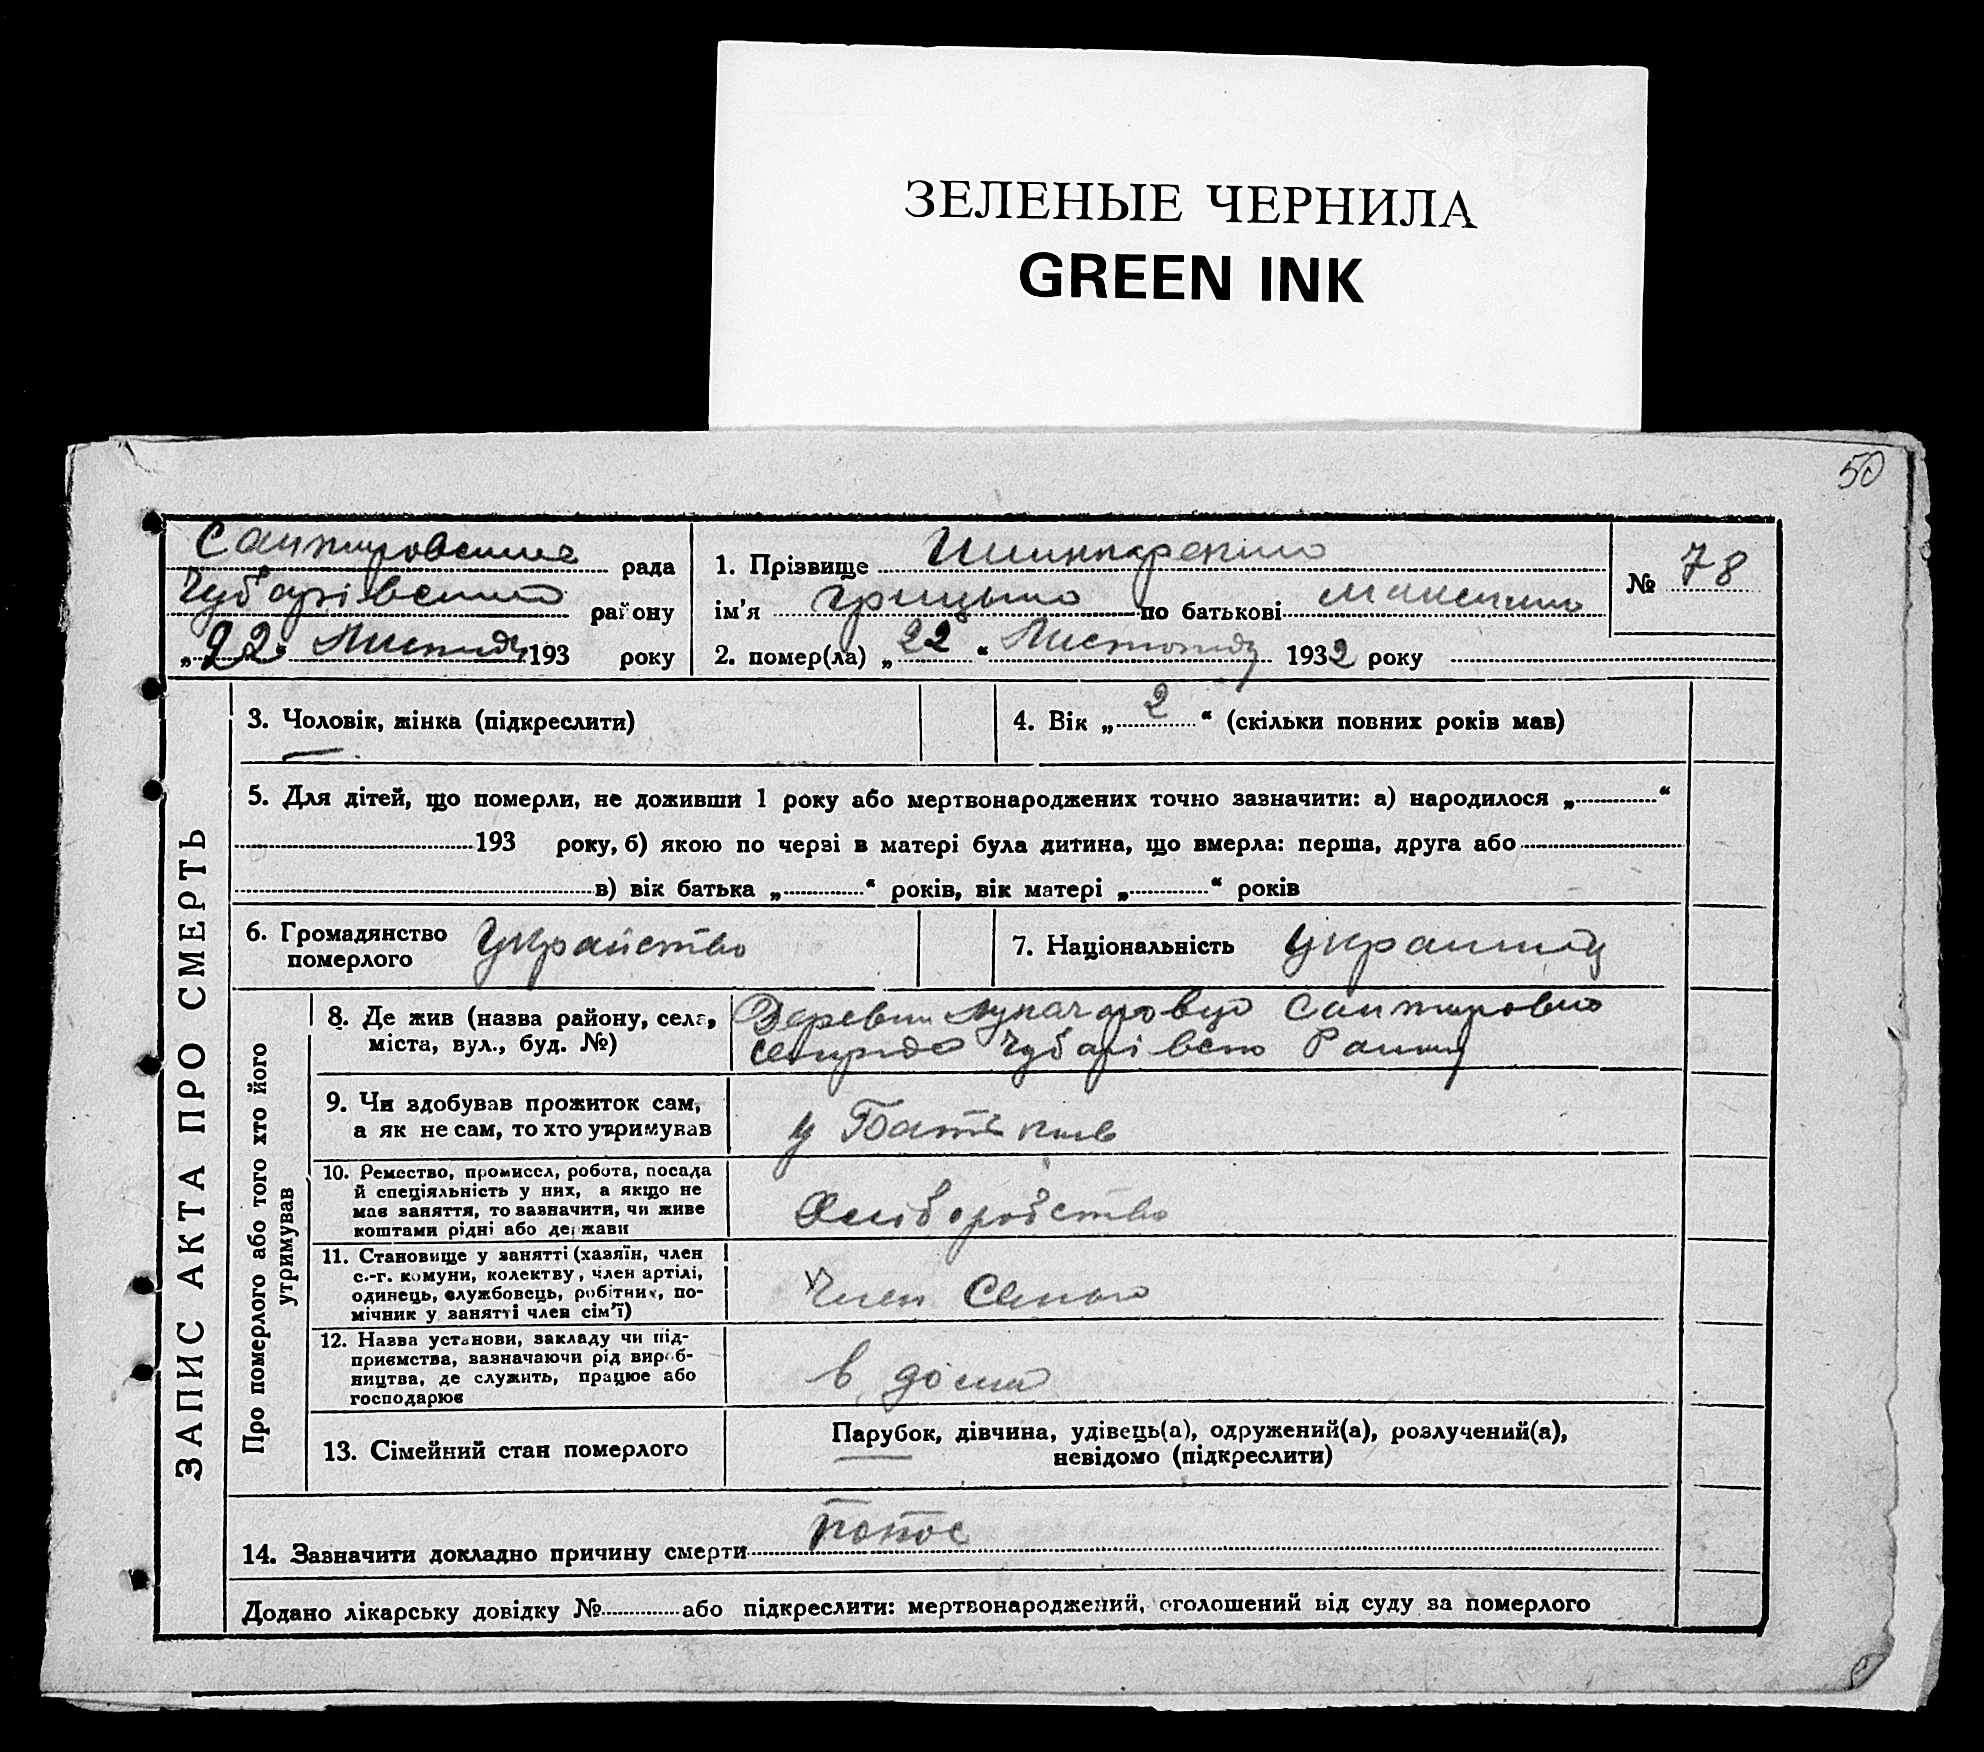 ЗЕЛЕНЫЕ ЧЕРНИЛА
GREEN INK
50
рада
Чубарівського району
„22“ 193 року
1. Прізвище
ім'я Грицько по батькові
№ 78
2. помер(ла) „22“ Листопада 1932 року
3. Чоловік, жінка (підкреслити)
4. Вік „2“ (скільки повних років мав)
5. Для дітей, що померли, не доживши 1 року або мертвонароджених точно зазначити: а) народилося „ “
193 року, б) якою по черзі в матері була дитина, що вмерла: перша, друга або
в) вік батька „ “ років, вік матері „ “ років
6. Громадянство
померлого
7. Національність
8. Де жив (назва району, села,
міста, вул., буд. №)
9. Чи здобував прожиток сам,
а як не сам, то хто утримував
у Батьків
10. Ремество, промисел, робота, посада
й спеціяльність у них, а якщо не
має заняття, то зазначити, чи живе
коштами рідні або держави
11. Становище у занятті (хазяїн, член
с.-г. комуни, колективу, член артілі,
одинець, службовець, робітник, по-
мічник у занятті член сім'ї)
Член
12. Назва установи, закладу чи під-
приємства, зазначаючи рід вироб-
ництва, де служить, працює або
господарює
в дома
13. Сімейний стан померлого
Парубок, дівчина, удівець(а), одружений(а), розлучений(а),
невідомо (підкреслити)
14. Зазначити докладно причину смерти
Понос
Додано лікарську довідку № або підкреслити: мертвонароджений, оголошений від суду за померлого
ЗАПИС АКТА ПРО СМЕРТЬ
Про померлого або того хто його
утримував